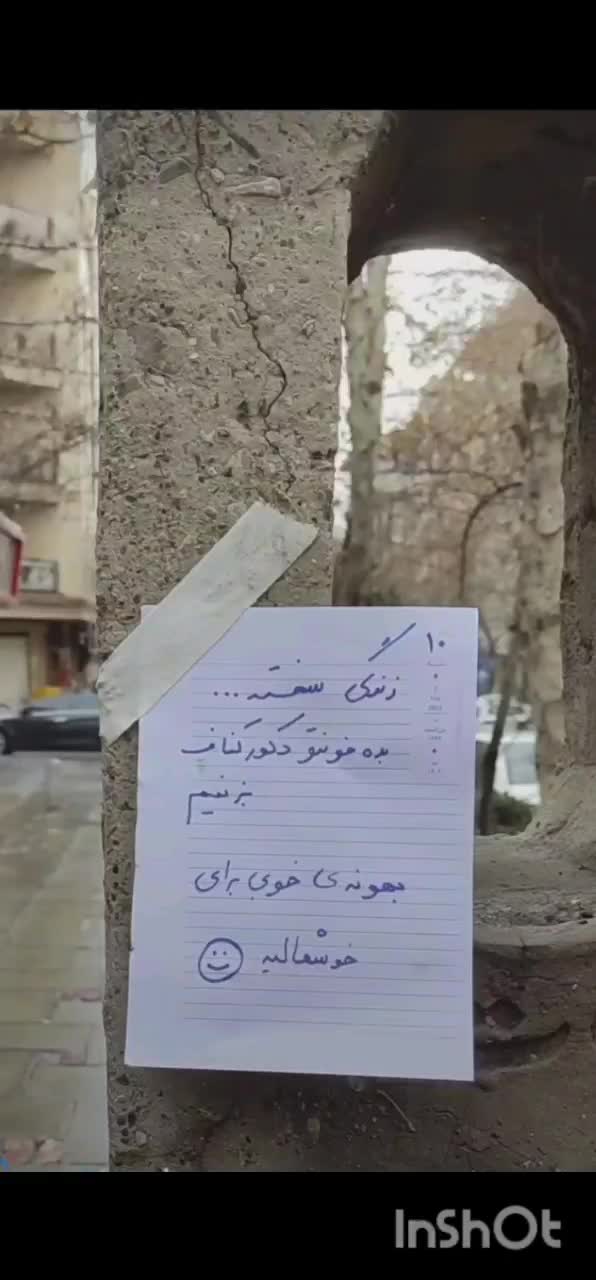 ۱۰
زندگی سخته...
بده خونتو دکور کناف
بزنیم
بهونه‌ی خوبی برای
خوشحالیه
InShOt